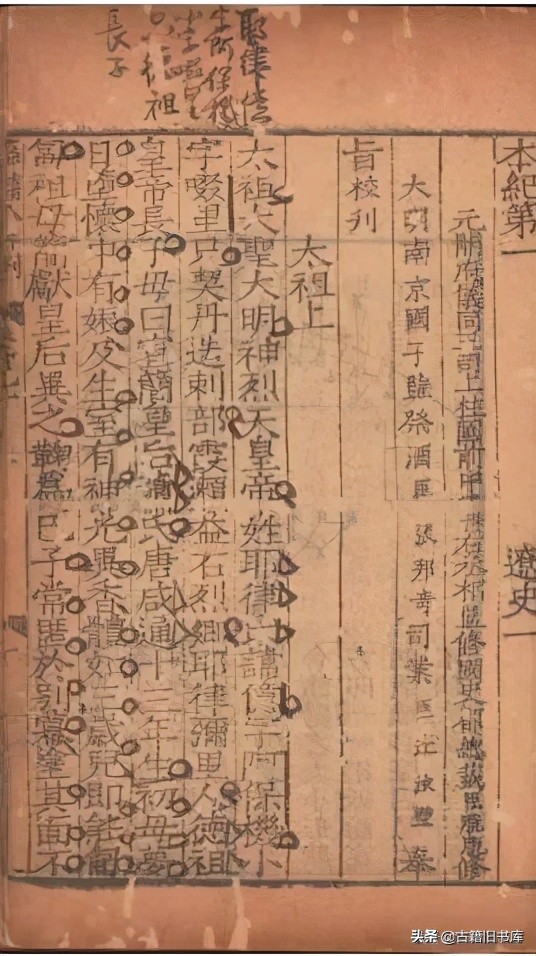 耶律億
字阿保機
小字啜里
只德祖
長子
本紀第一 遼史一
元開府儀同三司上柱國前中書右丞相監修國史都總裁臣脫脫修
大明南京國子監祭酒臣張邦奇司業臣江汝璧奉
旨校刊
太祖上
太祖大聖大明神烈天皇帝姓耶律氏諱億字阿保機小
字啜里只契丹迭剌部霞瀨益石烈鄉耶律彌里人德祖
皇帝長子母曰宣簡皇后蕭氏唐咸通十三年生初母夢
日墮懷中有娠及生室有神光異香體如三歲兒即能匍
匐祖母簡獻皇后異之鞠為己子常匿於別幕塗其面不
头条 @古籍旧书库